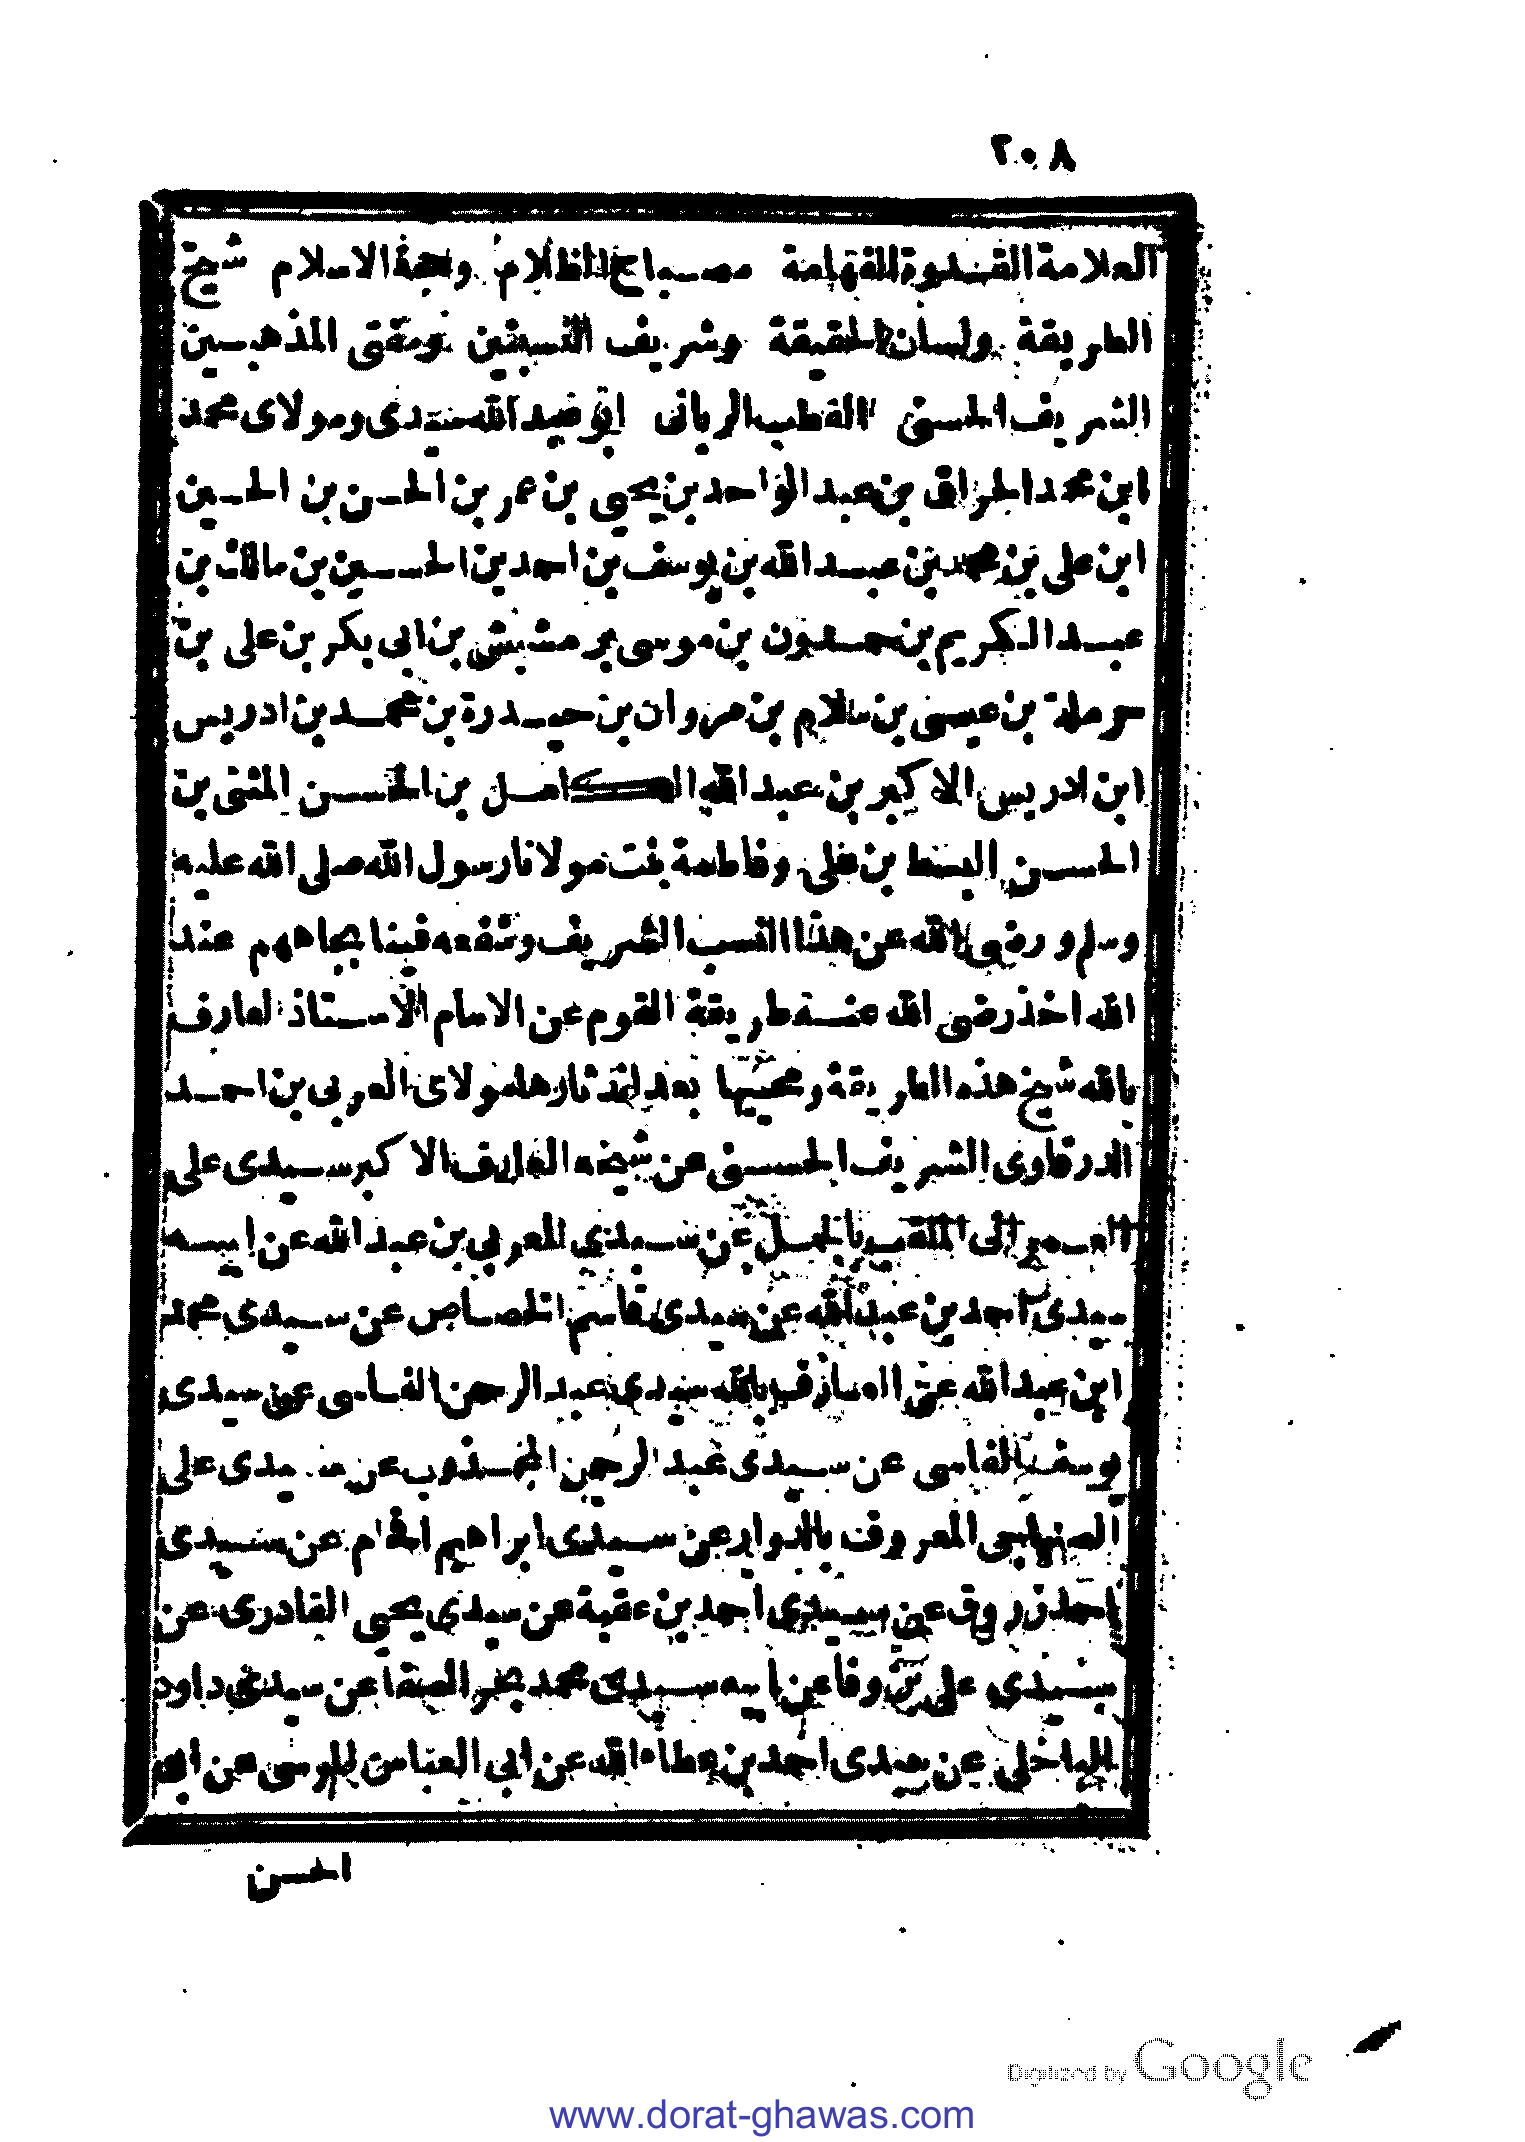 ٢٠٨
العلامة القدوة الفهامة مصباح الظلام وحجة الاسلام شيخ
الطريقة ولسان الحقيقة وشريف النسبتين ومفتى المذهبين
الشريف الحسنى القطب الربانى ابو عبد الله سيدى ومولاى محمد
ابن محمد الحراق بن عبد الواحد بن يحيى بن عمر بن الحسن بن الحسين
ابن على بن محمد بن عبد الله بن يوسف بن احمد بن الحسين بن مالك بن
عبد الكريم بن حمدون بن موسى بن مشيش بن ابى بكر بن على بن
حرملة بن عيسى بن سلام بن مروان بن حيدرة بن محمد بن ادريس
ابن ادريس الاكبر بن عبد الله الكامل بن الحسن المثنى بن
الحسن السبط بن على وفاطمة بنت مولانا رسول الله صلى الله عليه
وسلم ورضى الله عن هذا النسب الشريف وشفعه فينا بجاههم عند
الله اخذ رضى الله عنه طريقة القوم عن الامام الاستاذ العارف
بالله شيخ هذه الطريقة ومحييها بعد اندثارها مولاى العربى بن احمد
الدرقاوى الشريف الحسنى عن شيخه العارف الاكبر سيدى على
العمرانى الملقب بالجمل عن سيدى العربى بن عبد الله عن ابيه
سيدى احمد بن عبد الله عن سيدى قاسم الخصاصى عن سيدى محمد
ابن عبد الله عن العارف بالله سيدى عبد الرحمن الفاسى عن سيدى
يوسف الفاسى عن سيدى عبد الرحمن المجذوب عن سيدى على
الصنهاجى المعروف بالدوار عن سيدى ابراهيم افحام عن سيدى
احمد زروق عن سيدى احمد بن عقبة عن سيدى يحيى القادرى عن
سيدى على بن وفا عن ابيه سيدى محمد بحر الصفا عن سيدى داود
الباخلى عن سيدى احمد بن عطاء الله عن ابى العباس المرسى عن ابى
الحسن
Digitized by Google
www.dorat-ghawas.com